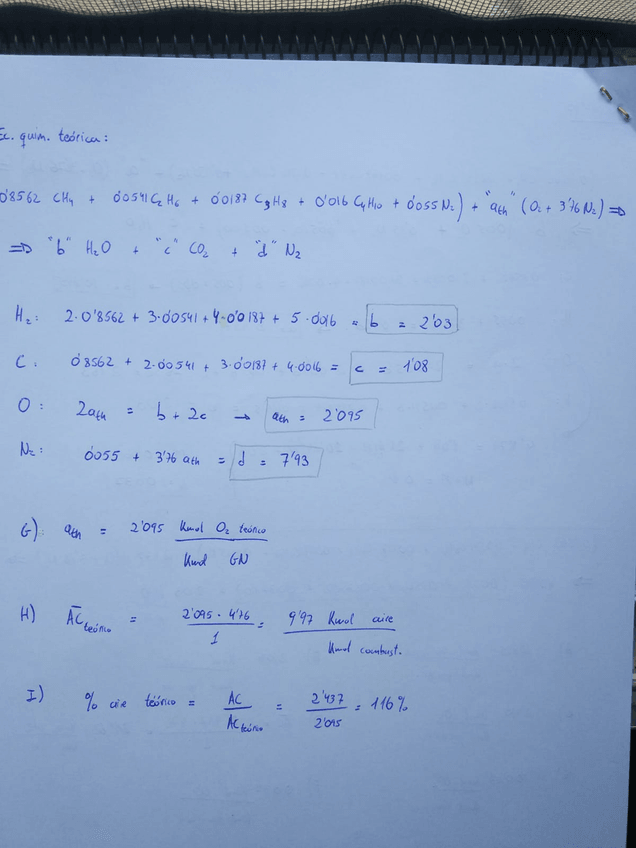 Ec. quim. teórica:
0'8562 CH4 + 0'0541 C2H6 + 0'0187 C3H8 + 0'016 C4H10 + 0'055 N2) + "ath" (O2 + 3'76 N2) ⇒
⇒ "b" H2O + "c" CO2 + "d" N2
H2: 2·0'8562 + 3·0'0541 + 4·0'0187 + 5·0'016 = b = 2'03
C: 0'8562 + 2·0'0541 + 3·0'0187 + 4·0'016 = c = 1'08
O: 2ath = b + 2c → ath = 2'095
N2: 0'055 + 3'76 ath = d = 7'93
G): ath = 2'095 Kmol O2 teórico / Kmol GN
H) AC teórico = 2'095 · 4'76 / 1 = 9'97 Kmol aire / Kmol combust.
I) % aire teórico = AC / AC teórico = 2'437 / 2'095 = 116%